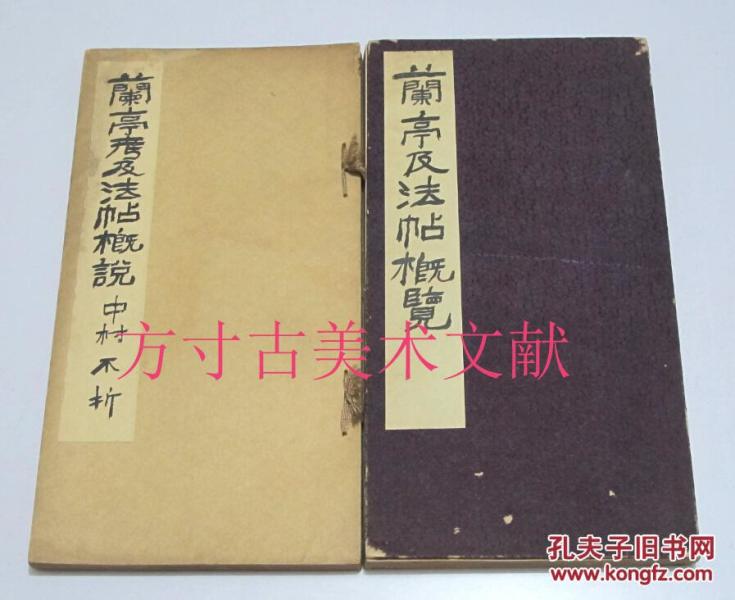 蘭亭考及法帖概說
中村不折
蘭亭及法帖概覽
方寸古美术文献
孔夫子旧书网
www.kongfz.com